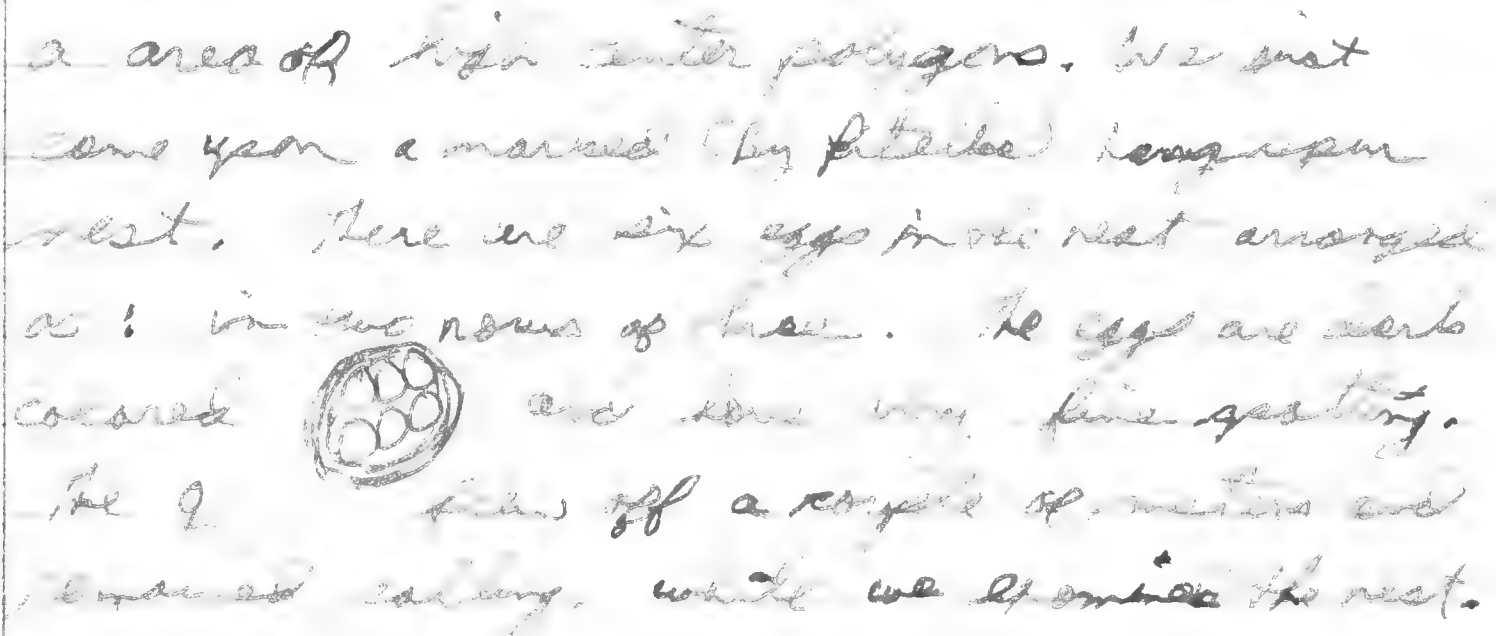 a area of high center polygons. We just
come upon a marked (by Pitelka) longspur
nest. There are six eggs in the nest arranged
as: in two rows of three. The eggs are dark
colored and have very fine spotting.
The ♀ flew off a couple of meters and
remained calling, while we examined the nest.